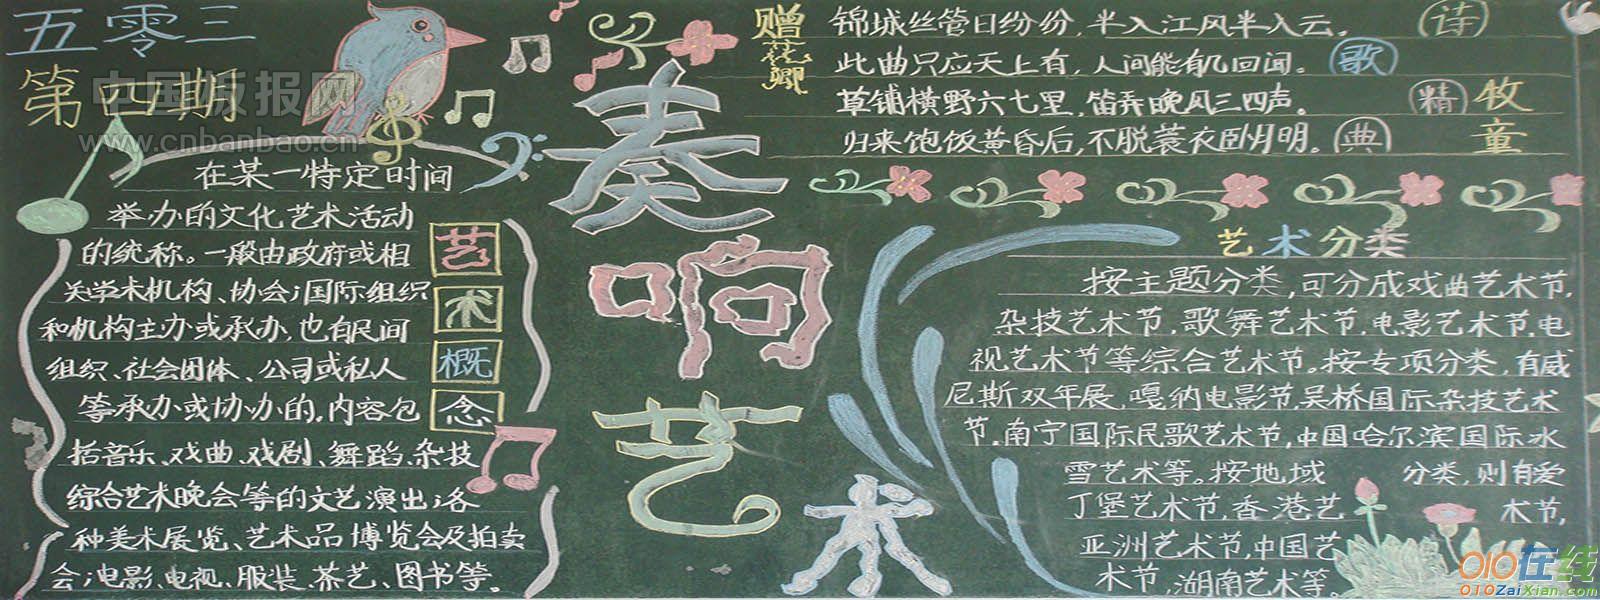 五零三
第四期
中国板报网
www.cnbanbao.cn
在某一特定时间
举办的文化艺术活动
的统称。一般由政府或相
关学术机构、协会;国际组织
和机构主办或承办,也有民间
组织、社会团体、公司或私人
等承办或协办的,内容包
括音乐、戏曲、戏剧、舞蹈、杂技
综合艺术晚会等的文艺演出;各
种美术展览、艺术品博览会及拍卖
会;电影、电视、服装、茶艺、图书等。
艺
术
概
念
奏
响
艺
术
赠花卿
锦城丝管日纷纷,半入江风半入云。
此曲只应天上有,人间能有几回闻。
草铺横野六七里,笛弄晚风三四声。
归来饱饭黄昏后,不脱蓑衣卧月明。
诗
歌
精
典
牧童
艺术分类
按主题分类,可分成戏曲艺术节,
杂技艺术节,歌舞艺术节,电影艺术节,电
视艺术节等综合艺术节。按专项分类,有威
尼斯双年展,嘎纳电影节,吴桥国际杂技艺术
节,南宁国际民歌艺术节,中国哈尔滨国际水
雪艺术等。按地域 分类,则有爱
丁堡艺术节,香港艺 术节,
亚洲艺术节,中国艺
术节,湖南艺术等。
010在线
010ZaiXian.com